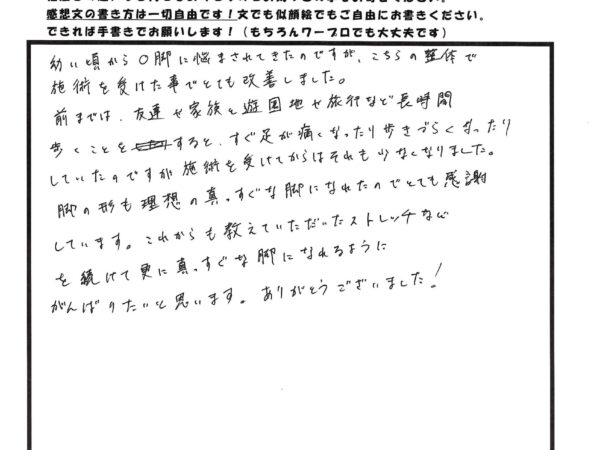 感想文の書き方は一切自由です！文でも似顔絵でもご自由にお書きください。
できれば手書きでお願いします！（もちろんワープロでも大丈夫です）
幼い頃からO脚に悩まされてきたのですが、こちらの整体で
施術を受けた事でとても改善しました。
前までは、友達や家族と遊園地や旅行など長時間
歩くことをすると、すぐ足が痛くなったり歩きづらくなったり
していたのですが施術を受けてからはそれも少なくなりました。
脚の形も理想の真っすぐな脚になれたのでとても感謝
しています。これからも教えていただいたストレッチなど
を続けて更に真っすぐな脚になれるように
がんばりたいと思います。ありがとうございました！